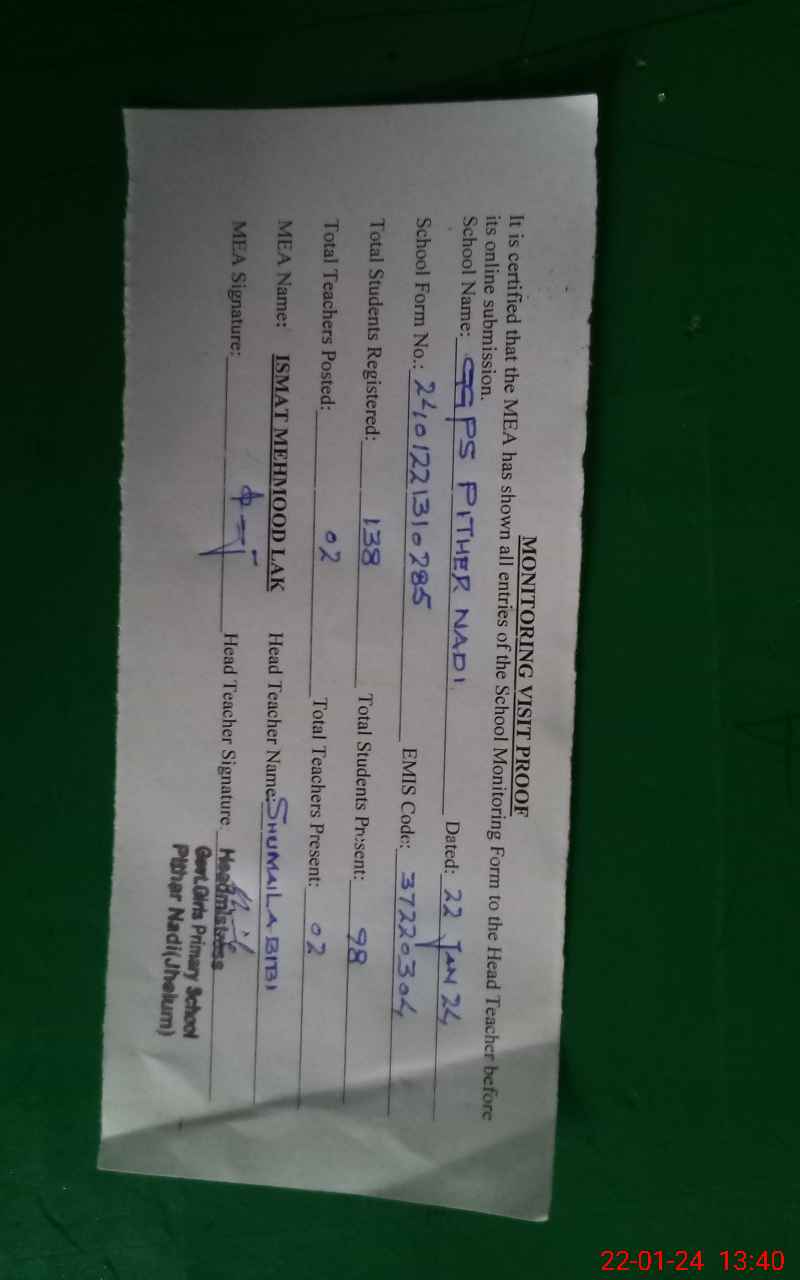 MONITORING VISIT PROOF
It is certified that the MEA has shown all entries of the School Monitoring Form to the Head Teacher before
its online submission.
School Name: GGPS PITHER NADI Dated: 22 JAN 24
School Form No.: 2401221310285 EMIS Code: 37220304
Total Students Registered: 138 Total Students Present: 98
Total Teachers Posted: 02 Total Teachers Present: 02
MEA Name: ISMAT MEHMOOD LAK Head Teacher Name: SHUMAILA BIBI
MEA Signature: Head Teacher Signature:
Headmistress
Govt. Girls Primary School
Pither Nadi (Jhelum)
22-01-24 13:40